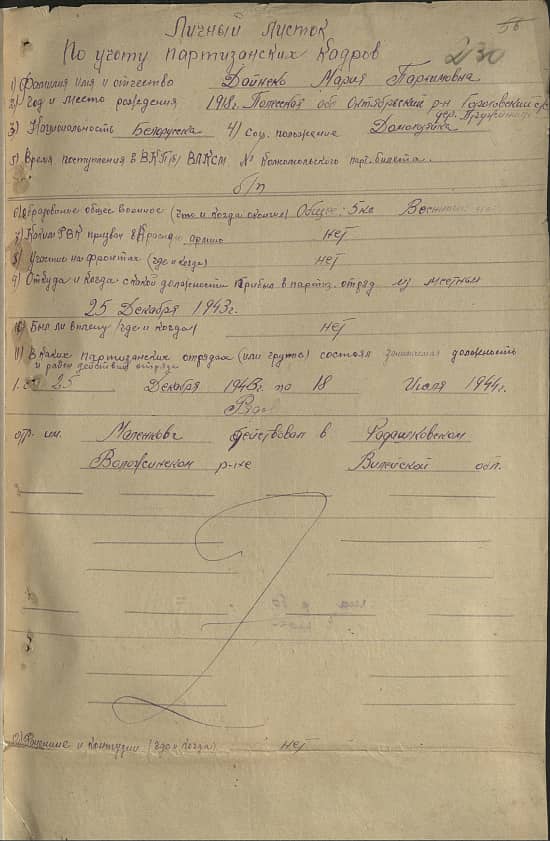 56
230
Личный Листок
По учоту партизанских Кадров
1) Фамилия имя и отчество Дайнеко Мария
2) Год и место рождения 1918г. Полесская обл Октябрьский р-н
дер.
3) Национальность Белорусска 4) Соц. положение Домохозяйка
5) Время поступления в ВКП(б) ВЛКСМ N Комсомольского парт. билета.
б/п
6) Образование общее военное (что и когда окончил) Общее 5кл
7) Каким РВК призван в Красную армию нет
8) Участие на фронтах (где и когда) нет
9) Откуда и когда с какой должности прибыл в партиз. отряд из местном
25 Декабря 1943г.
10) Был ли в плену (где и когда) нет
11) В каких партизанских отрядах (или группа) состоял занимаемая должность
и район действия отряда
1. с 25 Декабря 1943г по 18 Июля 1944г.
Ряд
отр. им. Маленкова действовал в Радашковском
Воложинском р-не Вилейской обл.
12) Ранение и контузии (где и когда) нет